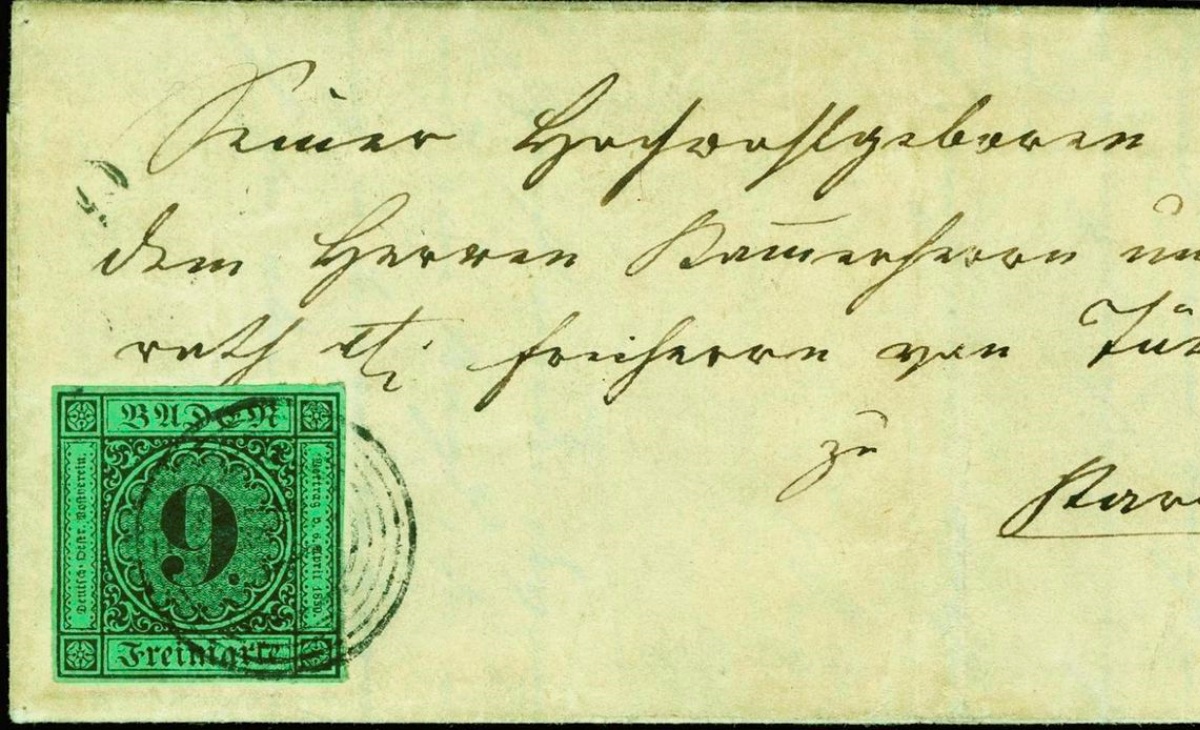 Seiner Hochwohlgeboren
dem Herren Kam̅erherrn
rath Freiherrn von
zu
BADEN
Deutsch-Oestr. Postverein.
9.
Vertrag v. 6. April 1850.
Freimarke